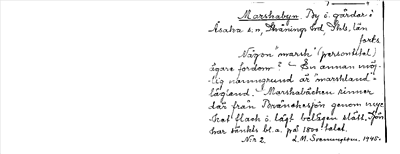 Marshabyn. By o. gårdar i
Åsaka s:n, Väne hd, Älvsb. län
forts.
Någon "marsk" (persontitel)
ägare fordom? En annan möj-
lig namngrund är "marskland" =
lågland. Marshabäcken rinner
där från Bränckesjön genom myc-
ket flack o. lågt belägen slätt. Sjön
har sänkts bl.a. på 1800 talet.
N:r 2. L.M. Svenungsson. 1945.